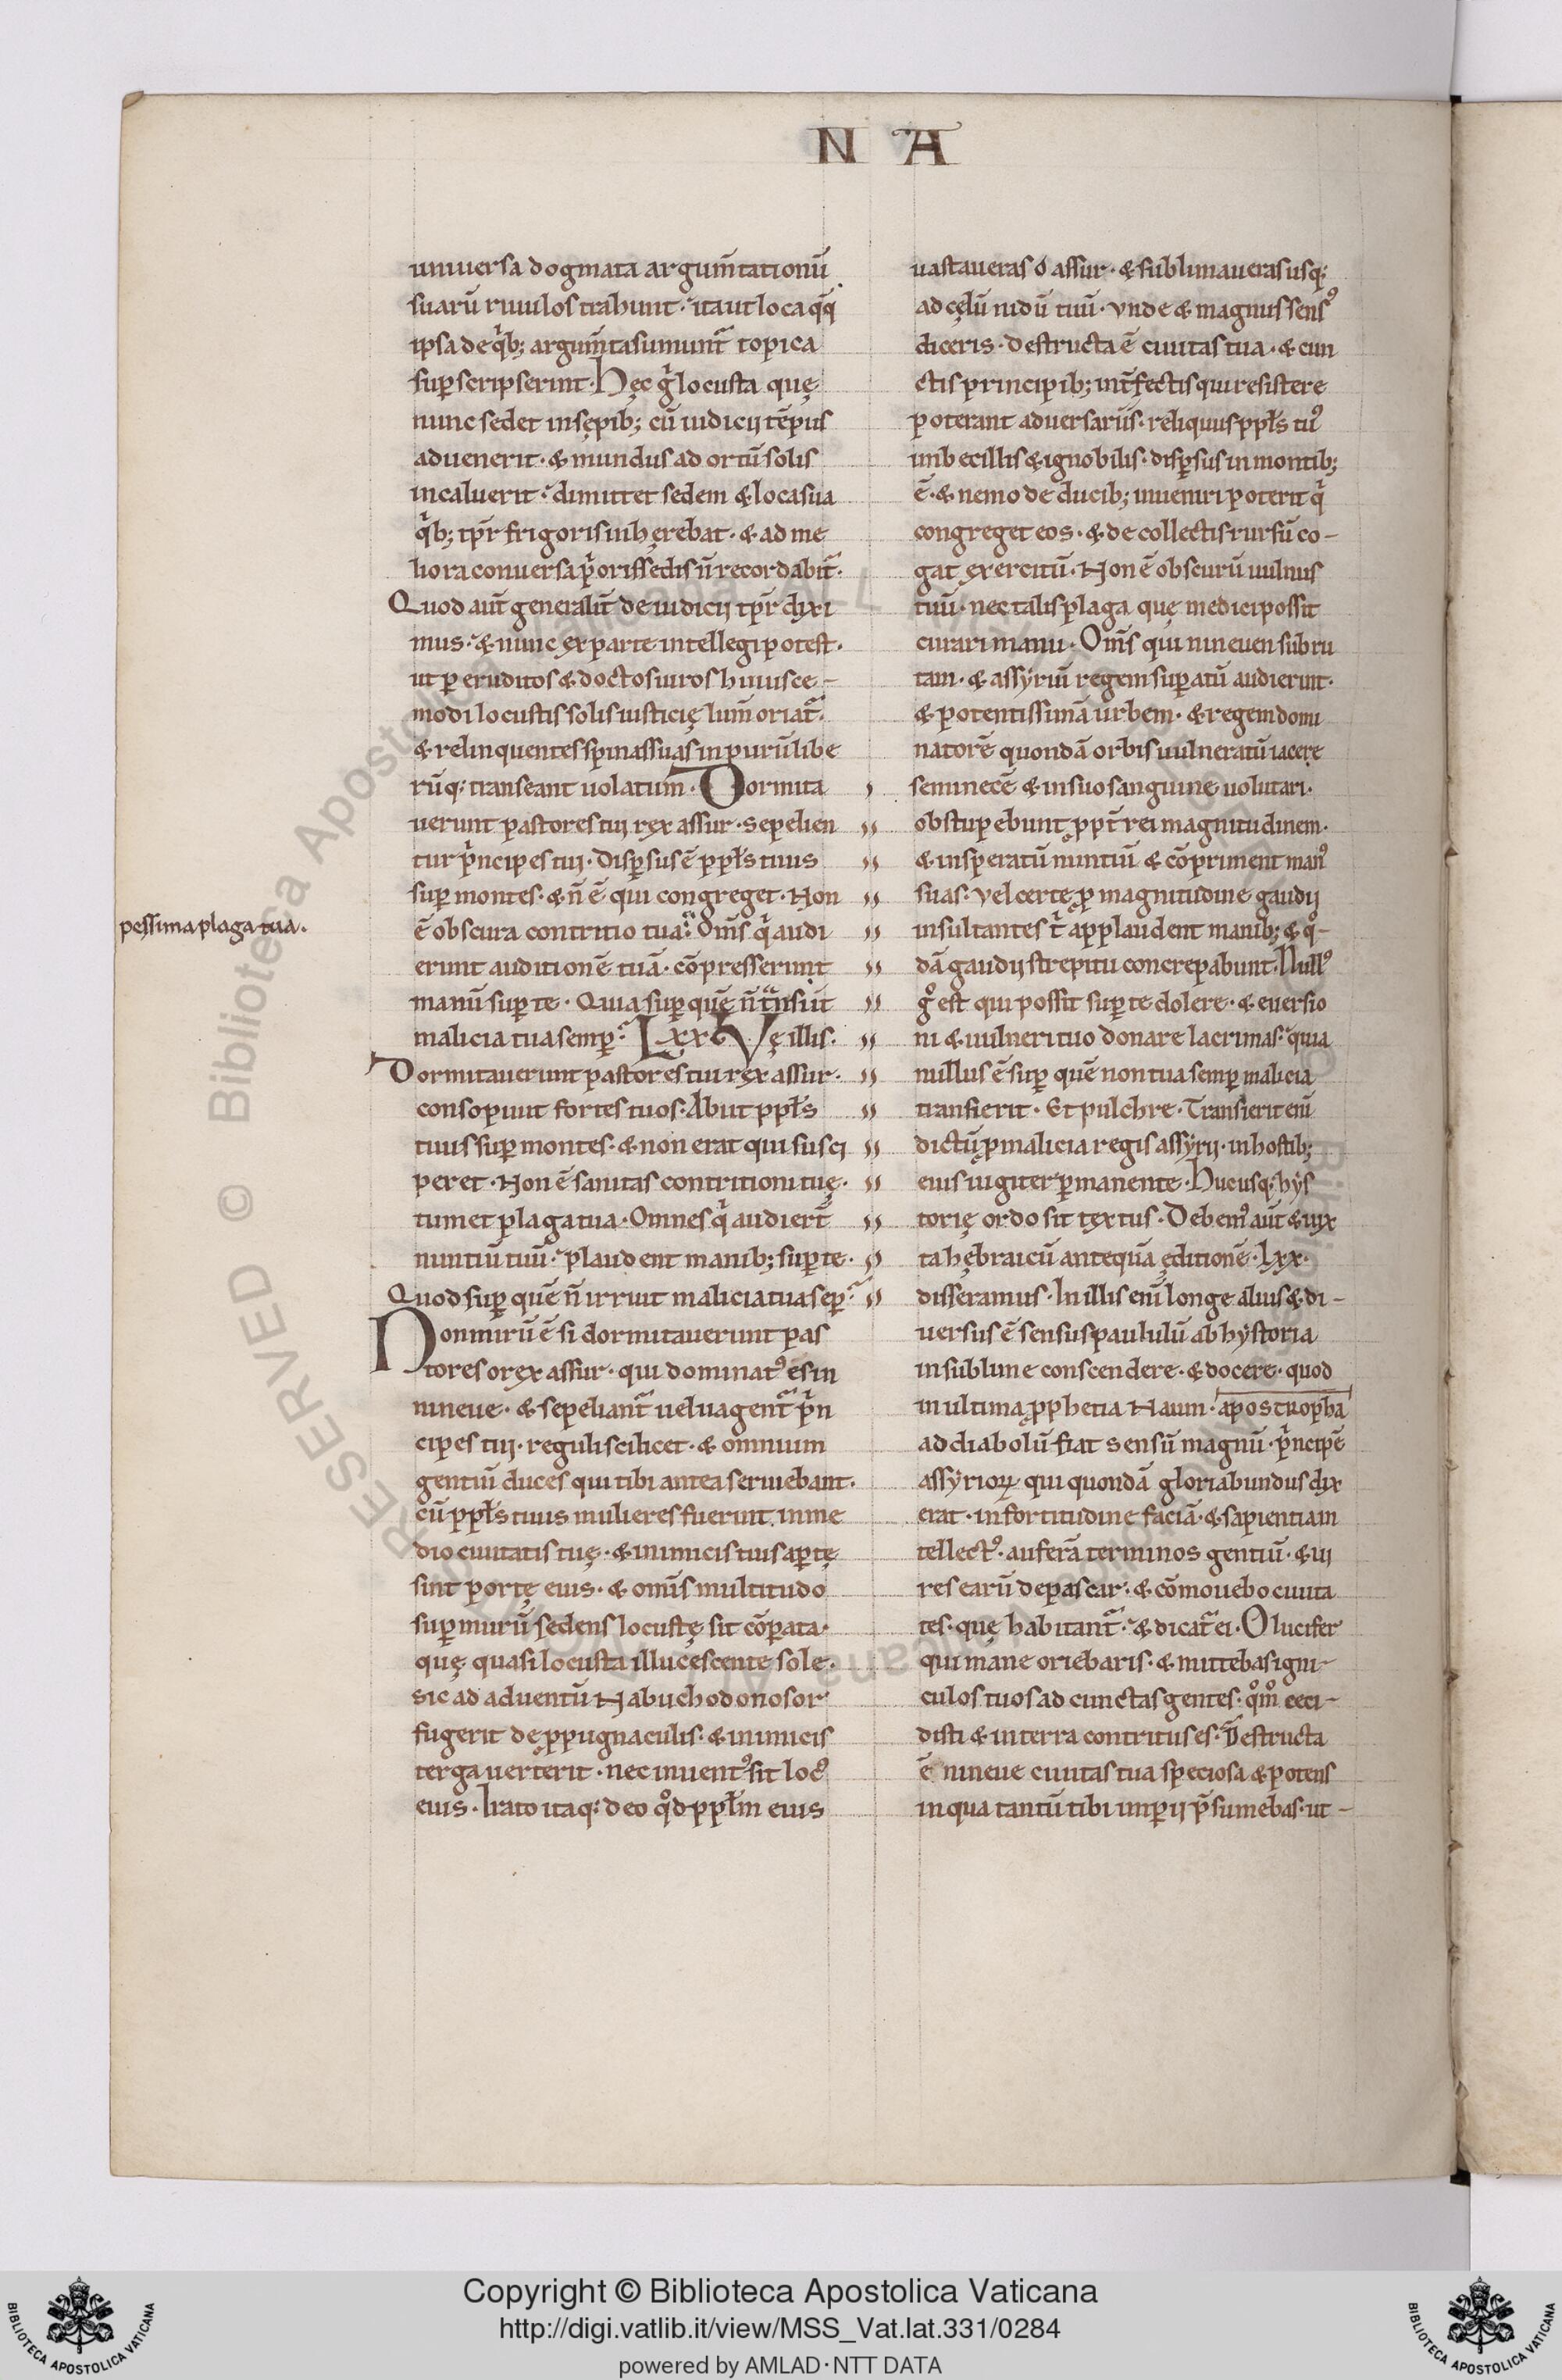 N A
uniuersa dogmata argum̄tationū
suarū riuulos trahunt. ita ut loca qq̄
ipsa de qͥb; argum̄ta sumunt᷑ topica
suꝑscripserint. Hęc gͥ locusta quę
nunc sedet in sępib; cū iudicij tēpus
aduenerit. & mundus ad ortū solis
incaluerit. dimittet sedem & loca sua
qͥb; tp̄r frigoris inhęrebat. & ad me
liora conuersa pͥoris sedis n̄ recordabit᷑.
Quod aut̄ generalit̄ de iudicij tp̄r dixi
mus. & nunc ex parte intellegi potest.
ut ꝑ eruditos & doctos uiros huiusce-
modi locustis solis iusticię lum̄ oriat᷑.
& relinquentes spinas suas in purū libe
rūq; transeant uolatum. Dormita
uerunt pastores tui rex assur. sepelien
tur pͥncipes tui. Disꝑsus ē ppl̄s tuus
suꝑ montes. & n̄ ē qui congreget. Non
pessima plaga tua.
ē obscura contritio tua. Om̄s qͥ audi
erunt auditionē tuā. cōpresserunt
manū suꝑ te. Quia suꝑ quē n̄ t᷑nsiit
malicia tua semꝑ. LXX Vę illis.
Dormitauerunt pastores tui rex assur.
consopiuit fortes tuos. Abiit ppl̄s
tuus suꝑ montes. & non erat qui susci
peret. Non ē sanitas contritioni tuę.
tumet plaga tua. Omnes qͥ audiert̄
nuntiū tuū. plaudent manib; suꝑ te.
Quod suꝑ quē n̄ irruit malicia tua sēꝑ.
Non mirū ē si dormitauerunt pas
tores o rex assur. qui dominatꝰ es in
nineue. & sepeliant᷑ uel uagent᷑ pͥn
cipes tui. reguli scilicet. & omnium
gentiū duces qui tibi antea seruiebant.
cū ppl̄s tuus mulieres fuerint in me
dio ciuitatis tuę. & inimicis tuis aꝑtę
sint portę eius. & om̄is multitudo
suꝑ murū sedens locustę sit cōꝑata.
quę quasi locusta illucescente sole.
sic ad aduentū Nabuchodonosor
fugerit de ꝓpugnaculis. & inimicis
terga uerterit. nec inuentꝰ sit locꝰ
eius. Irato itaq; deo qͦd ppl̄m eius
uastaueras o assur. & sublimaueras usq;
ad cęlū nidū tuū. Vnde & magnus sensꝰ
diceris. destructa ē ciuitas tua. & cun
ctis principib; int̄fectis qui resistere
poterant aduersariis. reliquus ppl̄s tuꝰ
imbecillis & ignobilis. disꝑsus in montib;
ē. & nemo de ducib; inueniri poterit qͥ
congreget eos. & de collectis rursū co-
gat exercitū. Non ē obscurū uulnus
tuū. nec talis plaga quę medici possit
curari manu. Om̄s qui nineuen subru
tam. & assyriū regem suꝑatū audierint.
& potentissimā urbem. & regem domi
natorē quondā orbis uulneratū iacere
seminecē & in suo sanguine uolutari.
obstupebunt ꝓpt̄ rei magnitudinem.
& insperatū nuntiū & cōpriment manꝰ
suas. Vel certe ꝓ magnitudine gaudij
insultantes t̄ applaudent manib; & qͦ-
dā gaudij strepitu concrepabunt. Nullꝰ
gͦ est qui possit suꝑ te dolere. & euersio
ni & uulneri tuo donare lacrimas. quia
nullus ē suꝑ quē non tua semꝑ malicia
transierit. Et pulchre. Transierit eni̅
dictū ꝓ malicia regis assyrij. in hostib;
eius iugiter ꝑmanente. Hucusq; hys
torię ordo sit textus. Debemꝰ aut̄ & iux
ta hębraicū antequā ęditionē. LXX.
disseramus. In illis eni̅ longe alius & di-
uersus ē sensus paululū ab hystoria
in sublime conscendere. & docere. quod
in ultima ꝓphetia Naum. apostropha
ad diabolū fiat sensū magnū. pͥncipē
assyrioꝝ qui quondā gloriabundus dix
erat. in fortitudine faciā. & sapientia in
tellectꝰ. auferā terminos gentiū. & ui
res earū depascar. & cōmouebo ciuita
tes. quę habitant᷑. & dicat᷑ ei. O lucifer
qui mane oriebaris. & mittebas igni-
culos tuos ad cunctas gentes. qͦmͦ ceci-
disti & in terra contritus es. Destructa
ē nineue ciuitas tua speciosa & potens
in qua tantū tibi imꝑij p̄sumebas. ut-
Copyright © Biblioteca Apostolica Vaticana
http://digi.vatlib.it/view/MSS_Vat.lat.331/0284
powered by AMLAD·NTT DATA